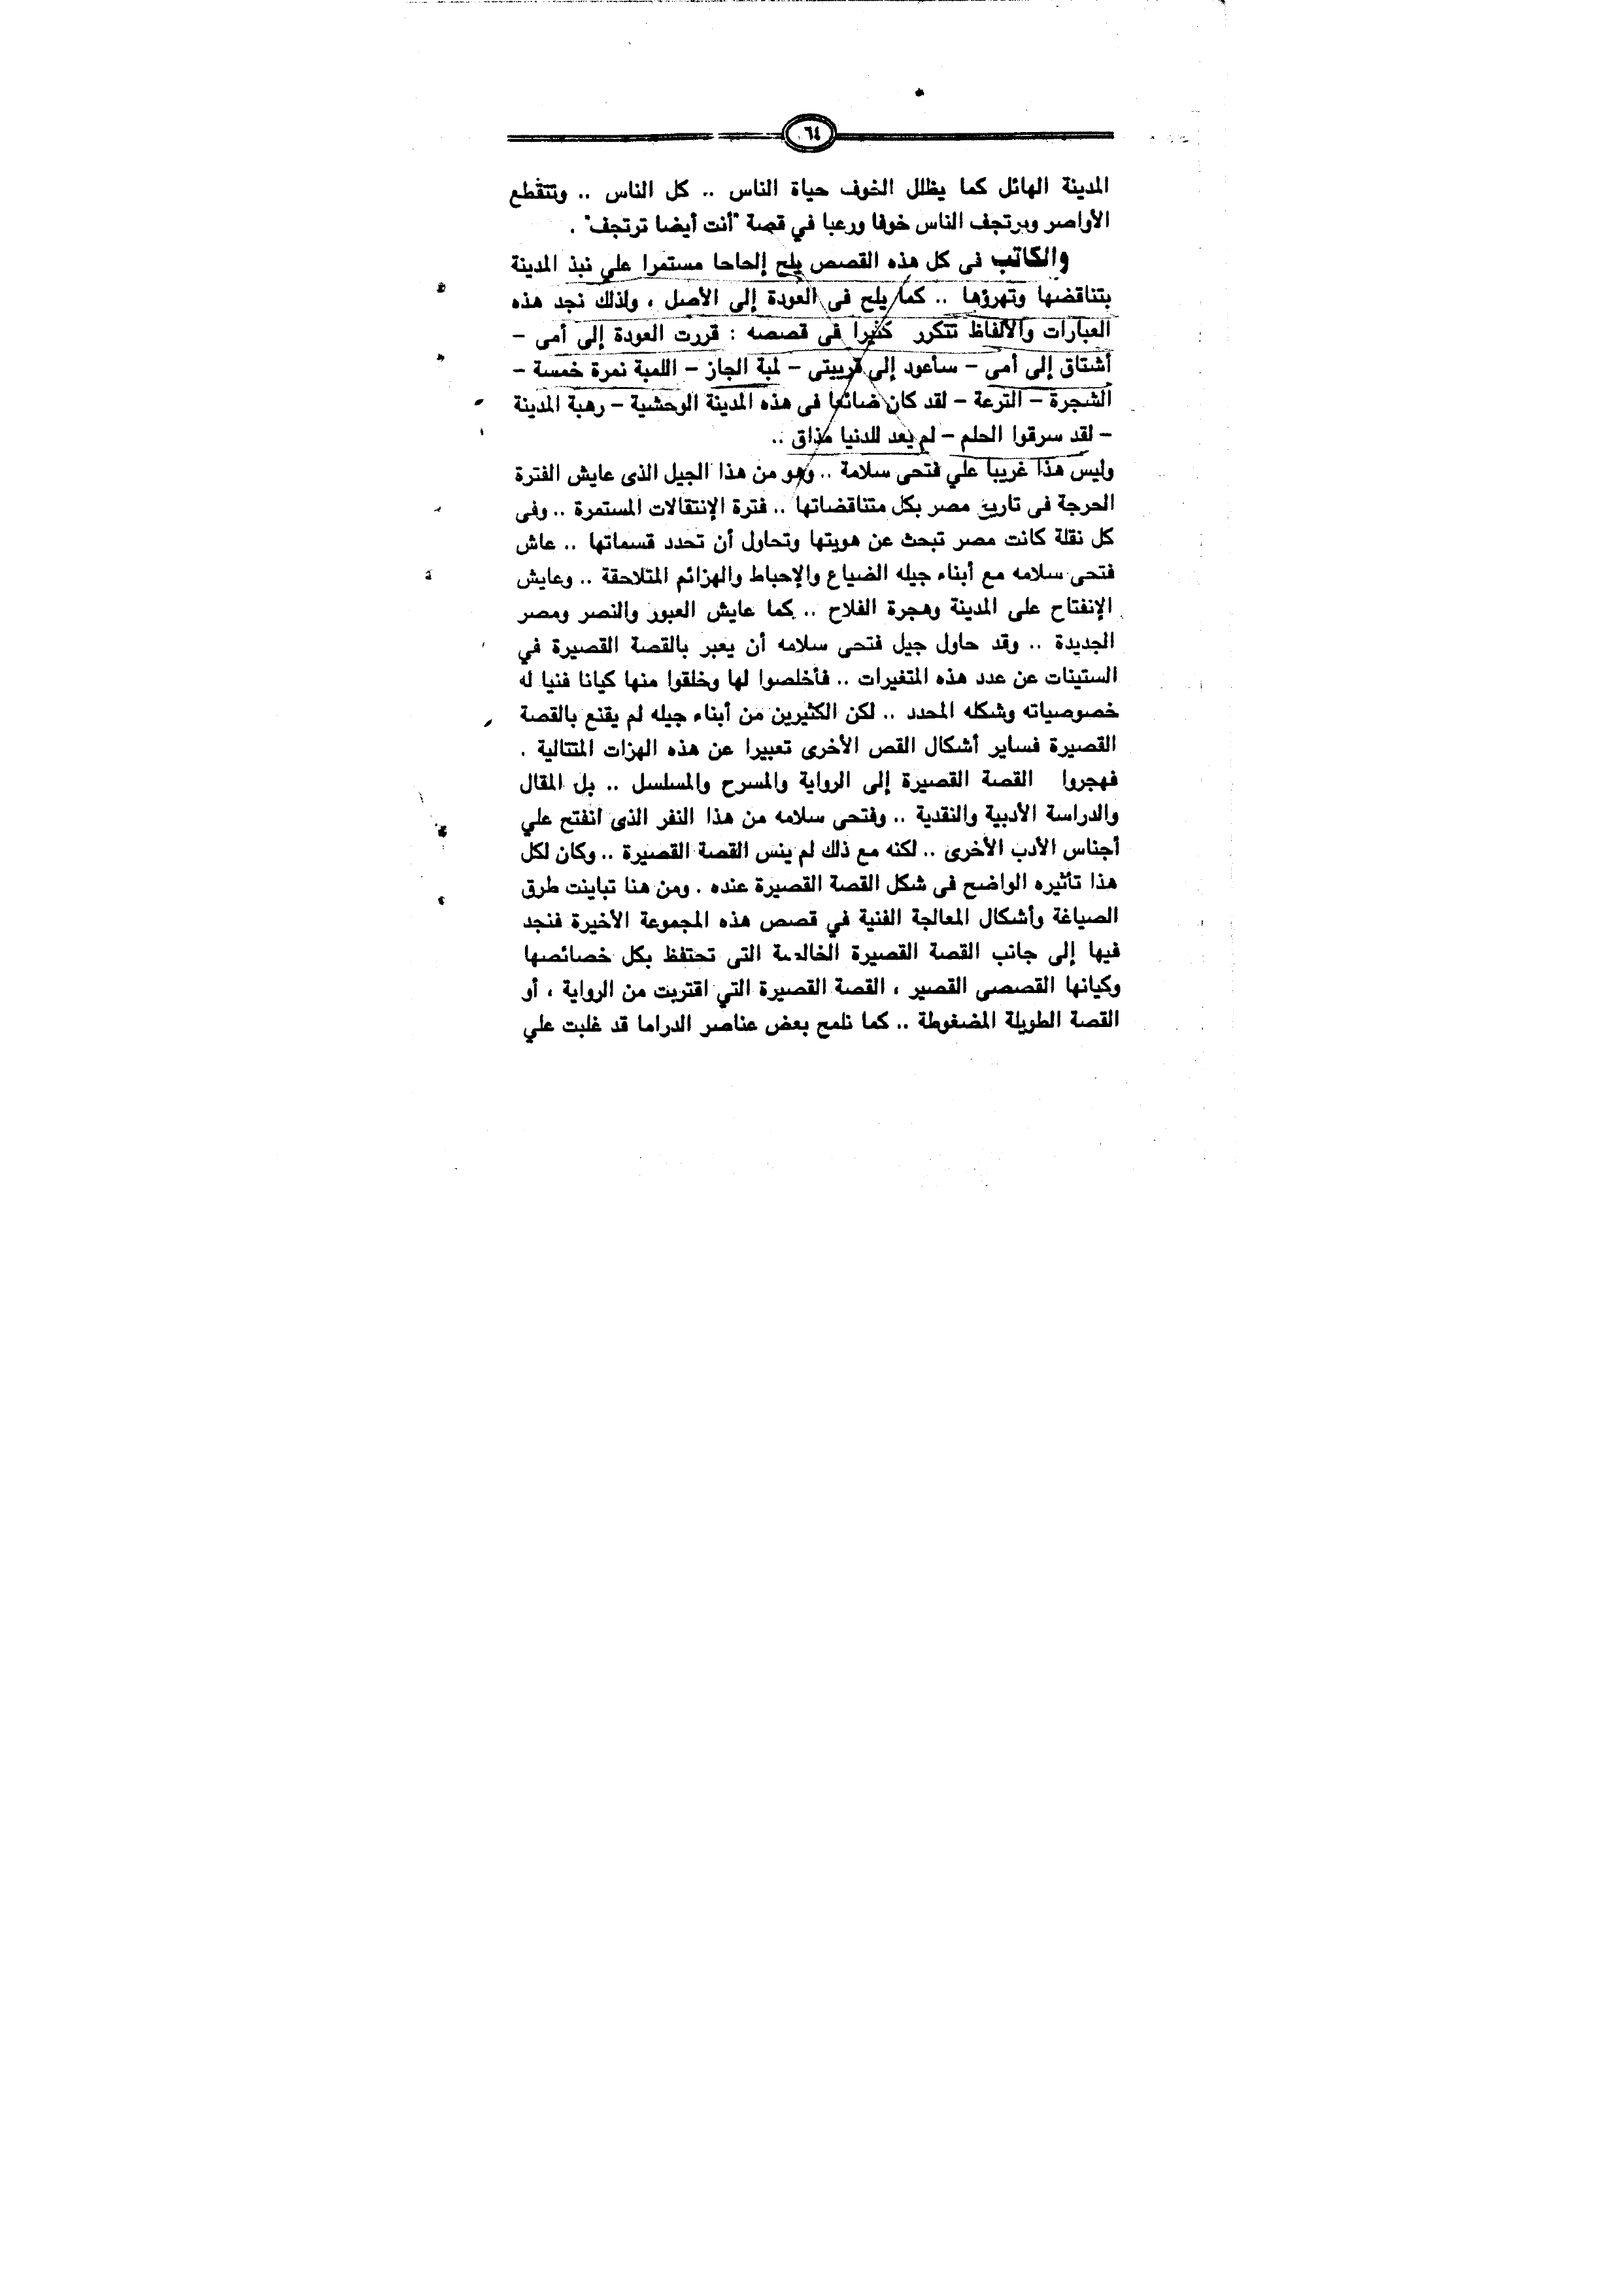 ٦٤
المدينة الهائل كما يظلل الخوف حياة الناس .. كل الناس .. وتتقطع
الأواصر ويرتجف الناس خوفا ورعبا في قصة "أنت أيضا ترتجف" .
والكاتب فى كل هذه القصص يلح إلحاحا مستمرا علي نبذ المدينة
بتناقضها وتهرؤها .. كما يلح فى العودة إلى الأصل ، ولذلك نجد هذه
العبارات والألفاظ تتكرر كثيرا فى قصصه : قررت العودة إلى أمى –
أشتاق إلى أمى – سأعود إلى قرييتى – لمبة الجاز – اللمبة نمرة خمسة –
الشجرة – الترعة – لقد كان ضائعا فى هذه المدينة الوحشية – رهبة المدينة
– لقد سرقوا الحلم – لم يعد للدنيا مذاق ..
وليس هذا غريبا علي فتحى سلامة .. وهو من هذا الجيل الذى عايش الفترة
الحرجة فى تاريخ مصر بكل متناقضاتها .. فترة الإنتقالات المستمرة .. وفى
كل نقلة كانت مصر تبحث عن هويتها وتحاول أن تحدد قسماتها .. عاش
فتحى سلامه مع أبناء جيله الضياع والإحباط والهزائم المتلاحقة .. وعايش
الإنفتاح على المدينة وهجرة الفلاح .. كما عايش العبور والنصر ومصر
الجديدة .. وقد حاول جيل فتحى سلامه أن يعبر بالقصة القصيرة في
الستينات عن عدد هذه المتغيرات .. فأخلصوا لها وخلقوا منها كيانا فنيا له
خصوصياته وشكله المحدد .. لكن الكثيرين من أبناء جيله لم يقنع بالقصة
القصيرة فساير أشكال القص الأخرى تعبيرا عن هذه الهزات المتتالية .
فهجروا القصة القصيرة إلى الرواية والمسرح والمسلسل .. بل المقال
والدراسة الأدبية والنقدية .. وفتحى سلامه من هذا النفر الذى انفتح علي
أجناس الأدب الأخرى .. لكنه مع ذلك لم ينس القصة القصيرة .. وكان لكل
هذا تأثيره الواضح فى شكل القصة القصيرة عنده . ومن هنا تباينت طرق
الصياغة وأشكال المعالجة الفنية في قصص هذه المجموعة الأخيرة فنجد
فيها إلى جانب القصة القصيرة الخالصة التى تحتفظ بكل خصائصها
وكيانها القصصى القصير ، القصة القصيرة التي اقتربت من الرواية ، أو
القصة الطويلة المضغوطة .. كما نلمح بعض عناصر الدراما قد غلبت علي